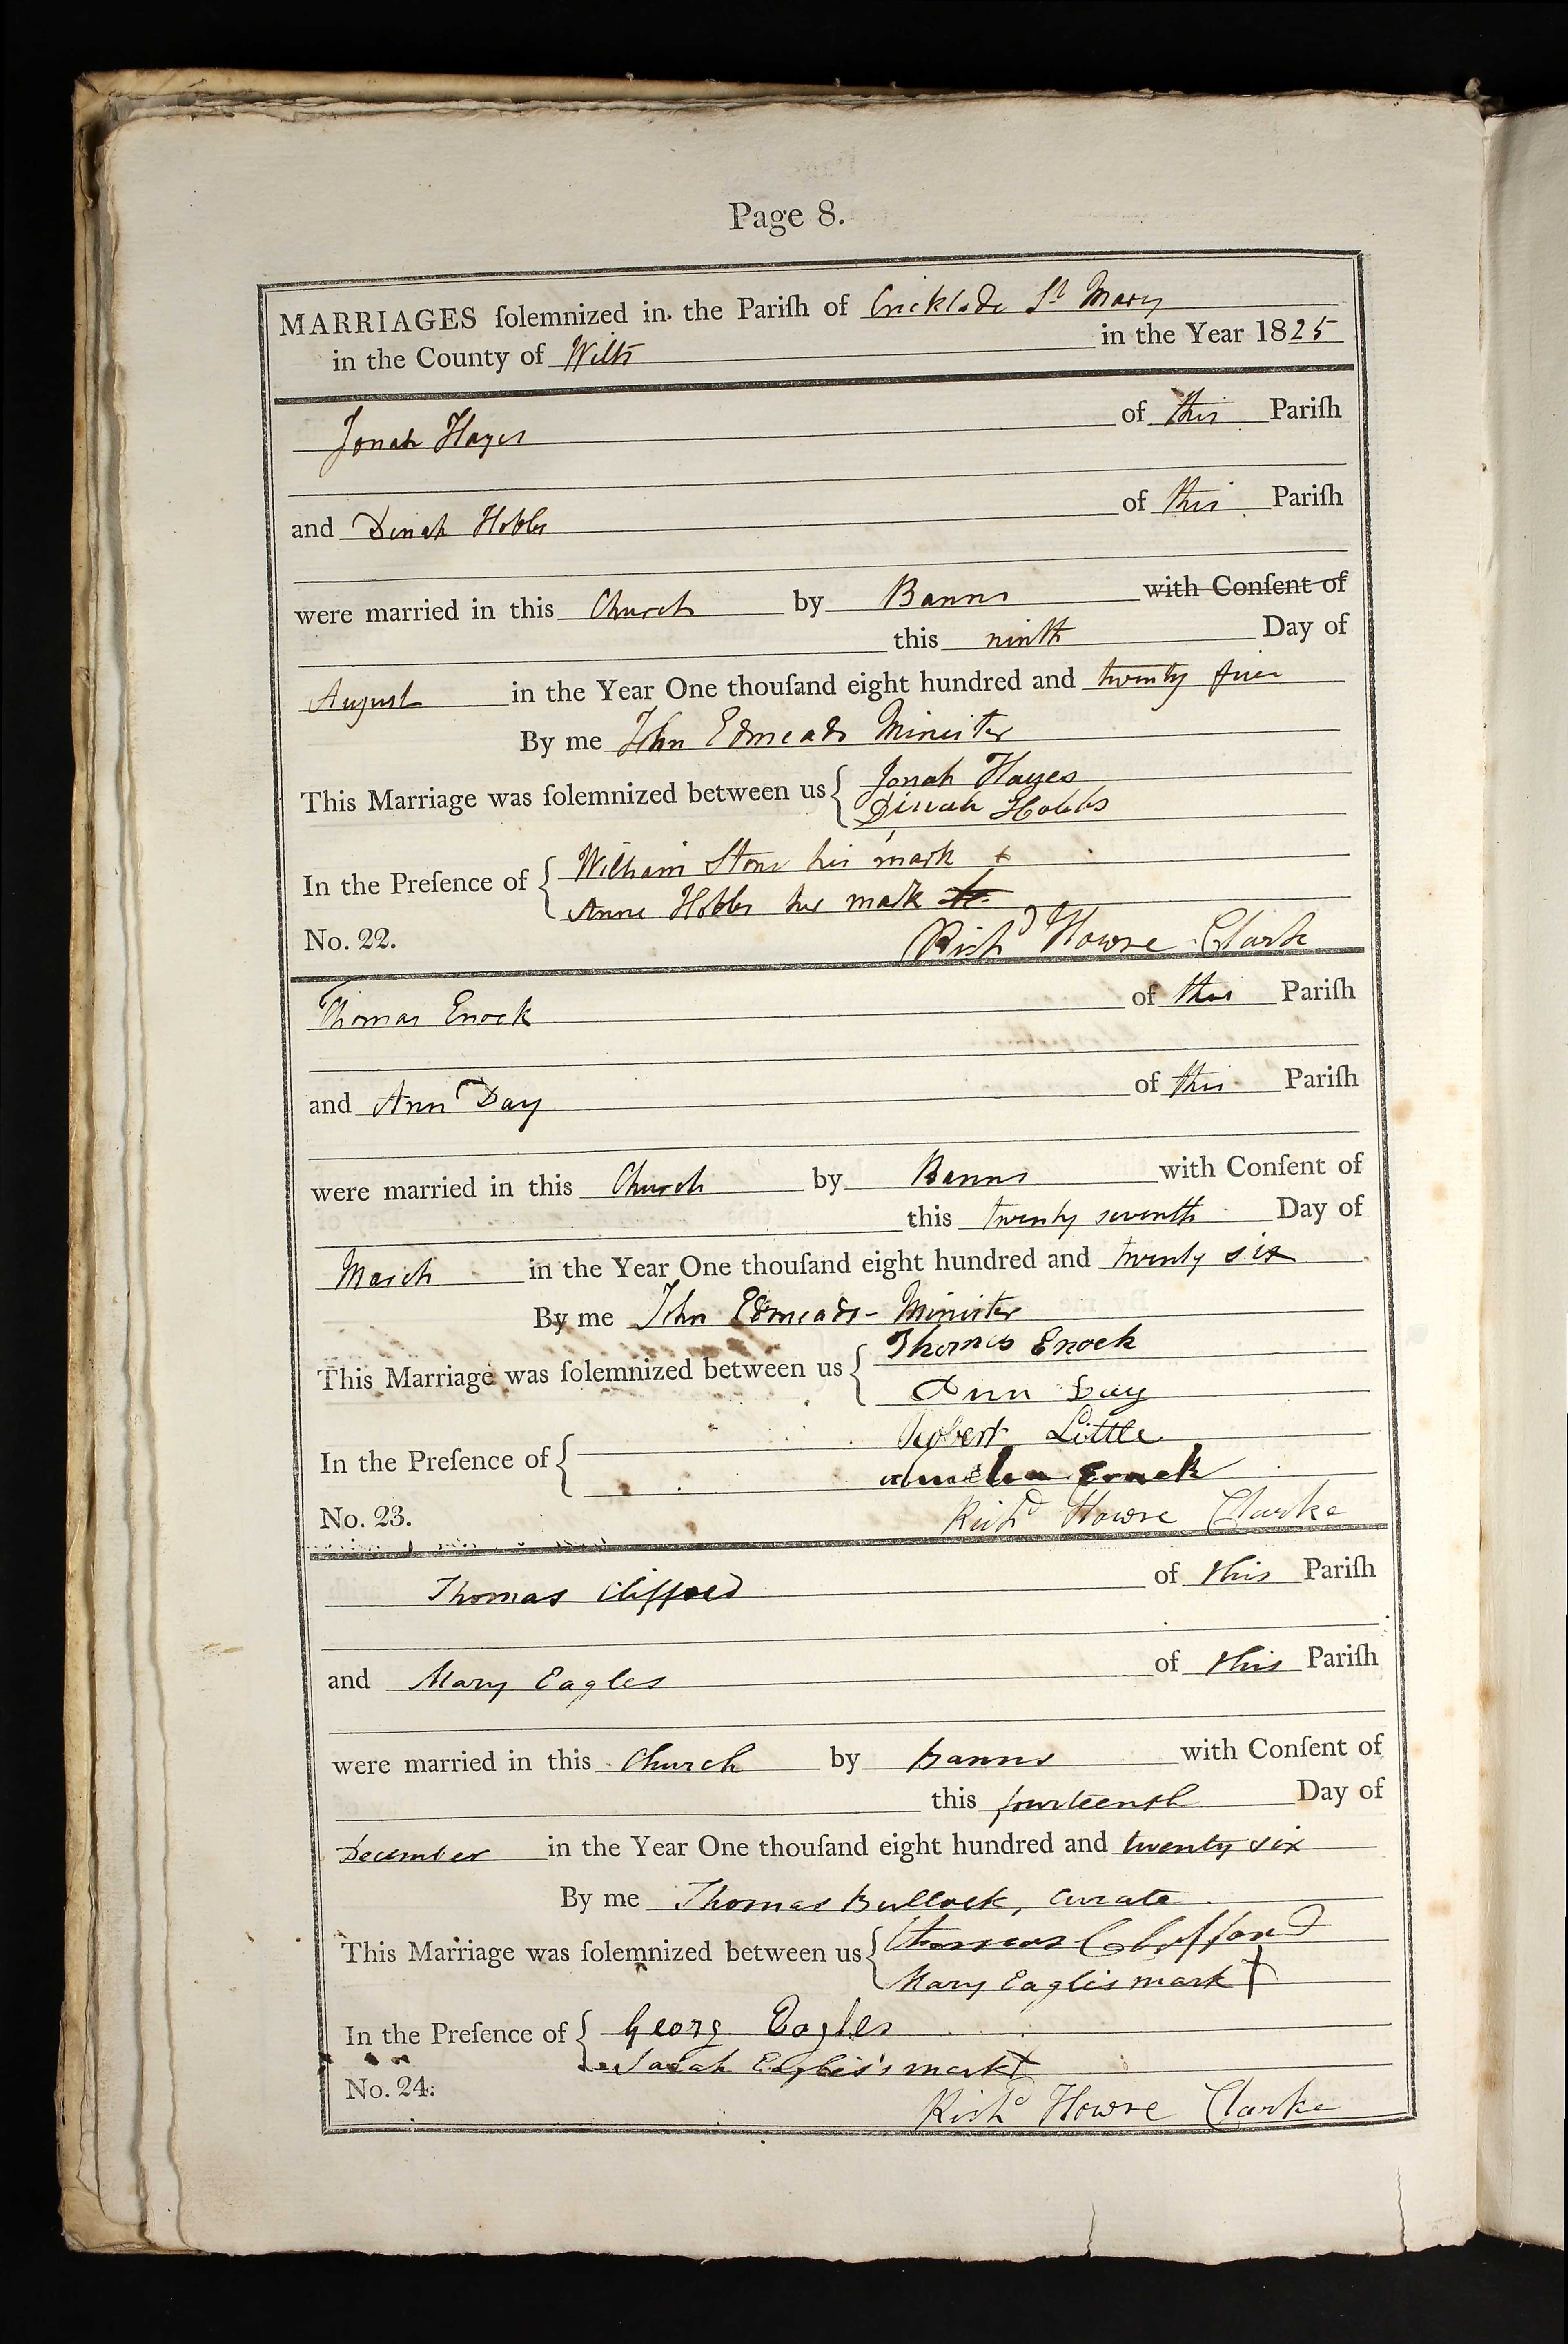 Page 8.
MARRIAGES ſolemnized in the Pariſh of Cricklade St Mary
in the County of Wilts in the Year 1825
Jonah Hayes of this Pariſh
and Dinah Hobbs of this Pariſh
were married in this Church by Banns with Conſent of
this ninth Day of
August in the Year One thouſand eight hundred and twenty five
By me John Edmeads Minister
This Marriage was ſolemnized between us { Jonah Hayes
Dinah Hobbs
In the Preſence of { William Stone his mark +
Anne Hobbs her mark
No. 22. Richd Howse Clarke
Thomas Enock of this Pariſh
and Ann Day of this Pariſh
were married in this Church by Banns with Conſent of
this twenty seventh Day of
March in the Year One thouſand eight hundred and twenty six
By me John Edmeads - Minister
This Marriage was ſolemnized between us { Thomas Enock
Ann Day
In the Preſence of { Robert Little
Enock
No. 23. Richd Howse Clarke
Thomas Clifford of this Pariſh
and Mary Eagles of this Pariſh
were married in this Church by banns with Conſent of
this fourteenth Day of
December in the Year One thouſand eight hundred and twenty six
By me Thomas Bullock, Curate
This Marriage was ſolemnized between us { Thomas Clifford
Mary Eagles mark †
In the Preſence of { Georg Eagles
Sarah Eagles's mark †
No. 24. Richd Howse Clarke